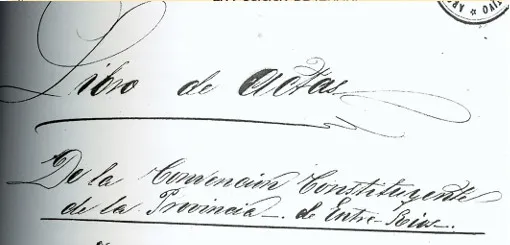 Libro de Actas
De la Convencion Constituyente
de la Provincia de Entre-Rios.